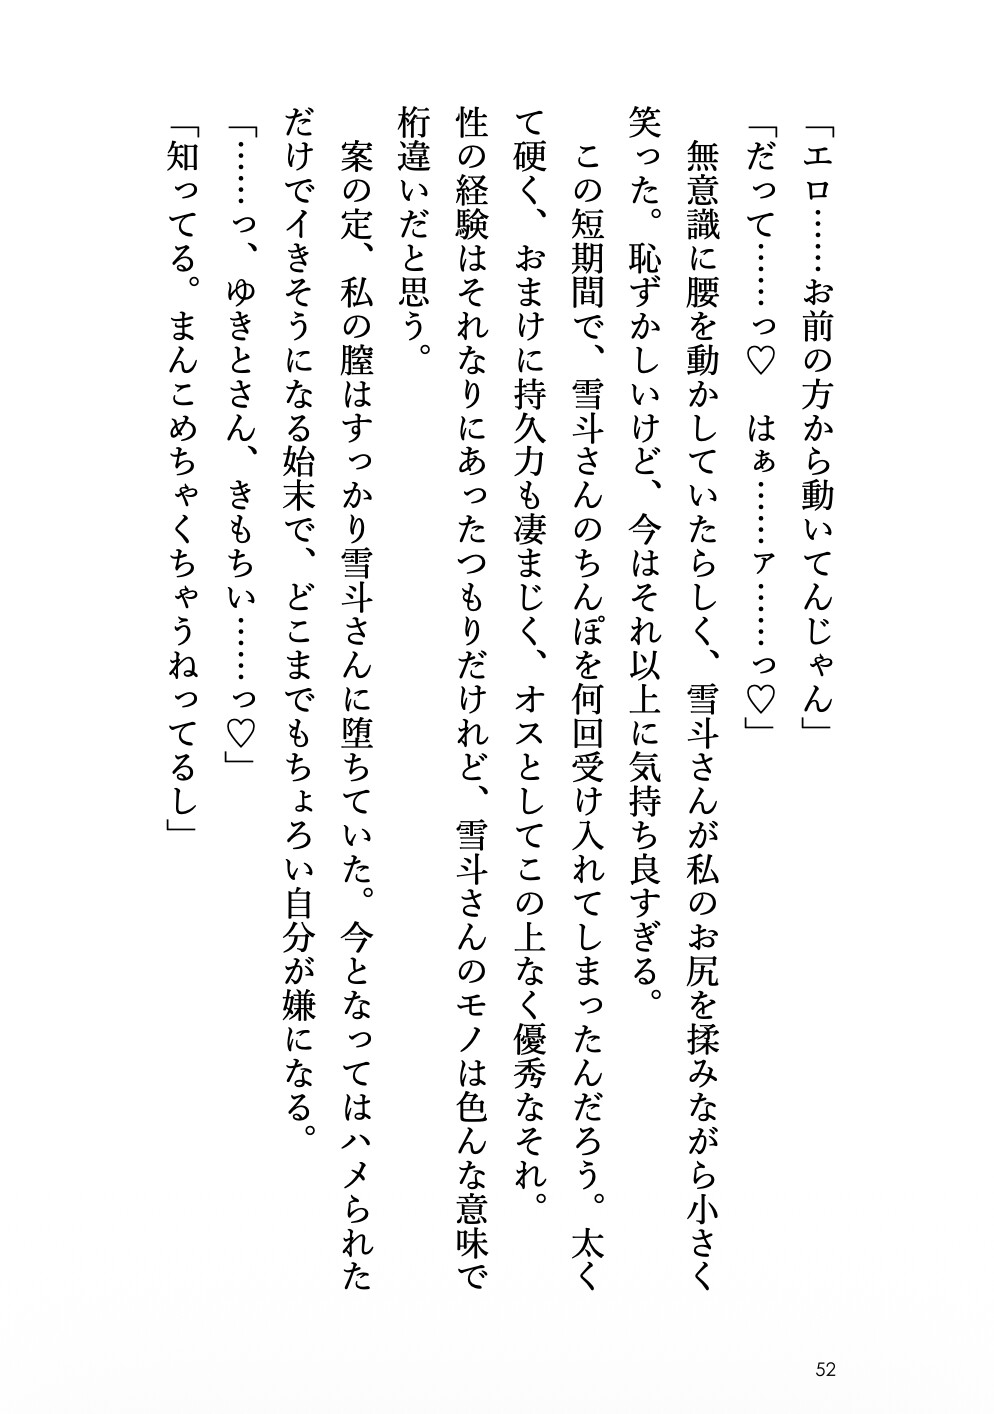 「エロ……お前の方から動いてんじゃん」
「だって……っ♡　はぁ……ァ……っ♡」
　無意識に腰を動かしていたらしく、雪斗さんが私のお尻を揉みながら小さく
笑った。恥ずかしいけど、今はそれ以上に気持ち良すぎる。
　この短期間で、雪斗さんのちんぽを何回受け入れてしまったんだろう。太く
て硬く、おまけに持久力も凄まじく、オスとしてこの上なく優秀なそれ。
性の経験はそれなりにあったつもりだけれど、雪斗さんのモノは色んな意味で
桁違いだと思う。
　案の定、私の膣はすっかり雪斗さんに堕ちていた。今となってはハメられた
だけでイきそうになる始末で、どこまでもちょろい自分が嫌になる。
「……っ、ゆきとさん、きもちい……っ♡」
「知ってる。まんこめちゃくちゃうねってるし」
52